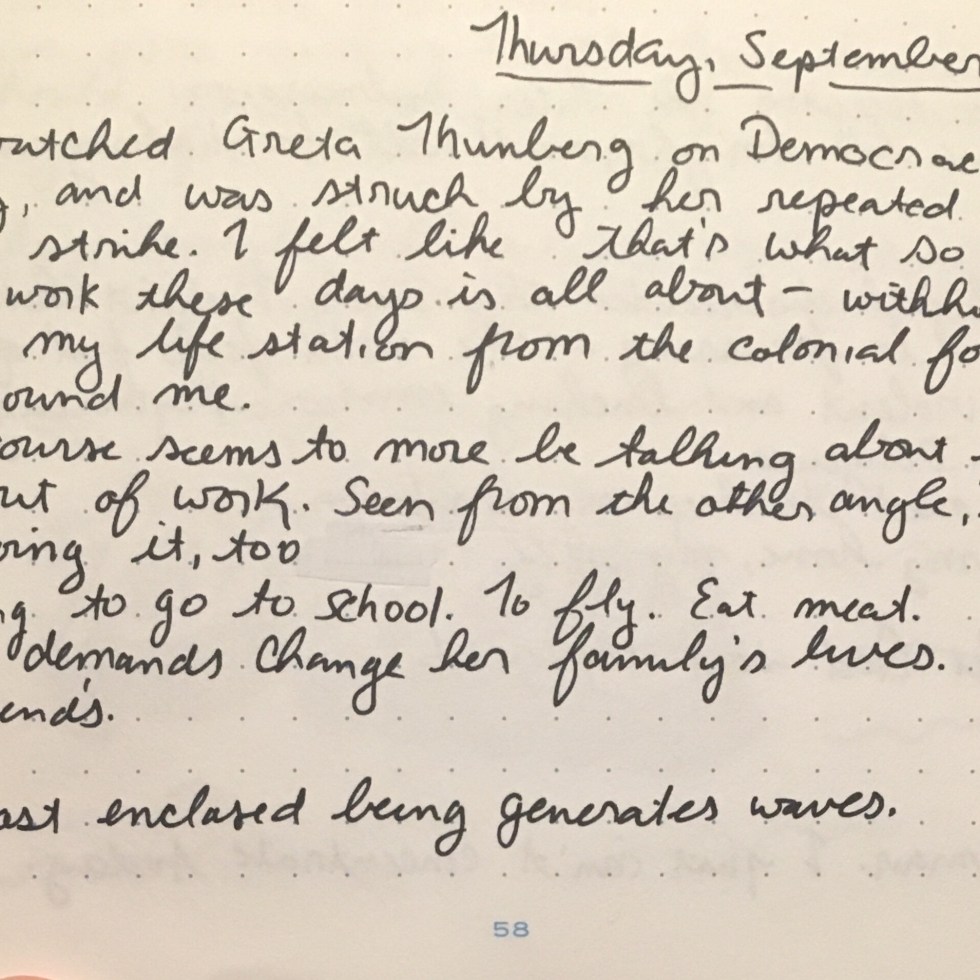 Thursday, September
watched Greta Thunberg on Democrac
, and was struck by her repeated
strike. I felt like that's what so
work these days is all about – withho
my life station from the colonial fo
ound me.
ourse seems to more be talking about
ut of work. Seen from the other angle,
oing it, too
ng to go to school. To fly. Eat meat.
demands change her family's lives.
ends.
ast enclosed being generates waves.
58